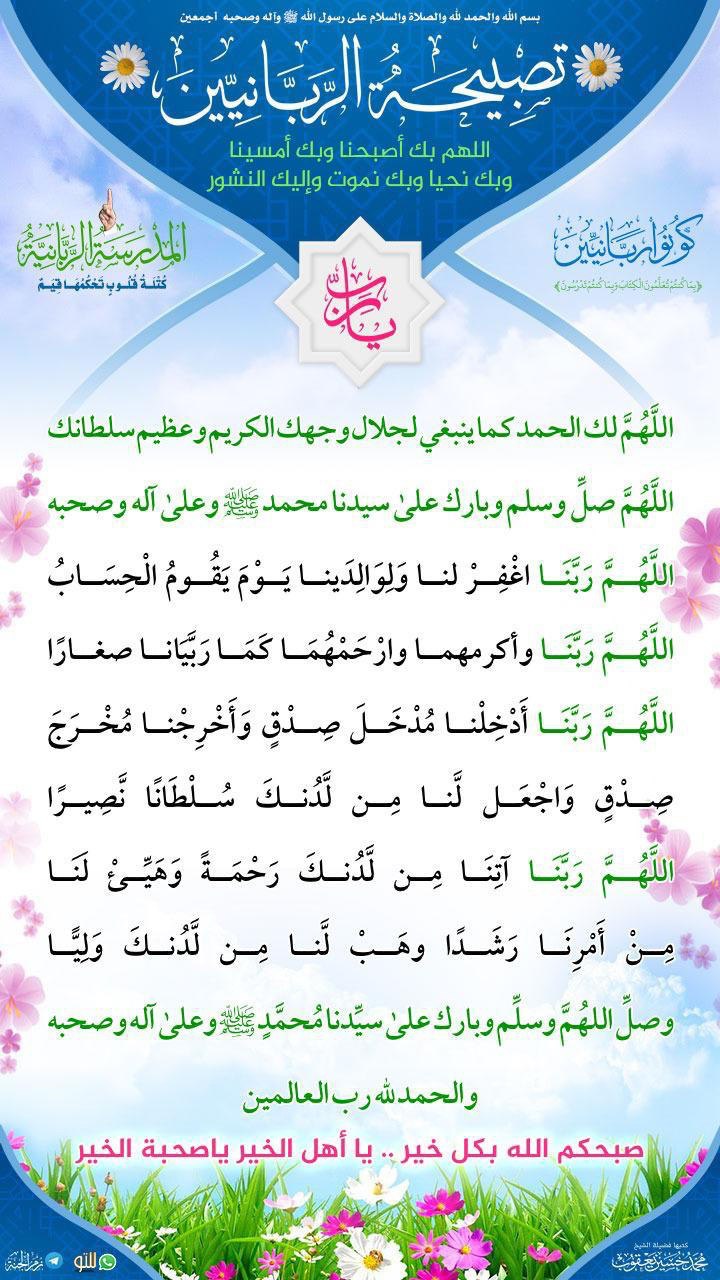 بسم الله والحمد لله والصلاة والسلام على رسول الله ﷺ وآله وصحبه أجمعين
تصبيحة الرَّبَّانيِّين
اللهم بك أصبحنا وبك أمسينا
وبك نحيا وبك نموت وإليك النشور
كُونُوا رَبَّانِيِّينَ
﴿بِمَا كُنتُمْ تُعَلِّمُونَ الْكِتَابَ وَبِمَا كُنتُمْ تَدْرُسُونَ﴾
المَدْرَسَةُ الرَّبَّانِيَّةُ
كُتْلَةُ قُلُوبٍ تَحْكُمُهَا قِيَمٌ
يا رب
اللَّهُمَّ لك الحمد كما ينبغي لجلال وجهك الكريم وعظيم سلطانك
اللَّهُمَّ صلِّ وسلم وبارك علىٰ سيدنا محمد ﷺ وعلىٰ آله وصحبه
اللَّهُمَّ رَبَّنَا اغْفِرْ لنا وَلِوَالِدَينا يَوْمَ يَقُومُ الْحِسَابُ
اللَّهُمَّ رَبَّنَا وأكرمهما وارْحَمْهُمَا كَمَا رَبَّيَانا صغارًا
اللَّهُمَّ رَبَّنَا أَدْخِلْنا مُدْخَلَ صِدْقٍ وَأَخْرِجْنا مُخْرَجَ
صِدْقٍ وَاجْعَل لَّنا مِن لَّدُنكَ سُلْطَانًا نَّصِيرًا
اللَّهُمَّ رَبَّنَا آتِنَا مِن لَّدُنكَ رَحْمَةً وَهَيِّئْ لَنَا
مِنْ أَمْرِنَا رَشَدًا وهَبْ لَّنا مِن لَّدُنكَ وَلِيًّا
وصلِّ اللهُمَّ وسلِّم وبارك علىٰ سيِّدنا مُحمَّدٍ ﷺ وعلىٰ آله وصحبه
والحمد لله رب العالمين
صبحكم الله بكل خير .. يا أهل الخير ياصحبة الخير
كتبها فضيلة الشيخ
محمد حسين يعقوب
للتو
زمر الجنة